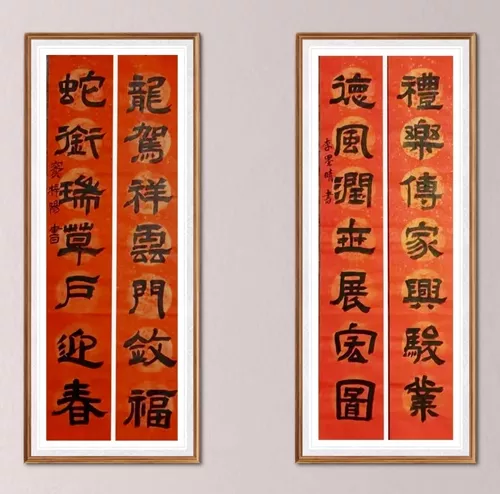 龍駕祥雲門斂福
蛇銜瑞草戶迎春
禮樂傳家興駿業
德風潤世展宏圖
李墨晴書